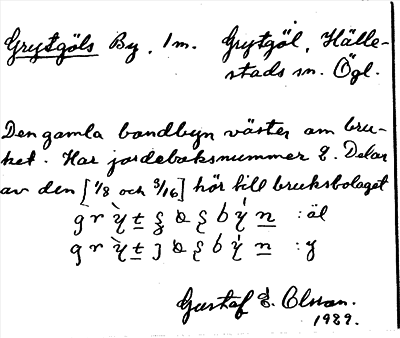 Grytgöls By, 1 m. Grytgöl, Hälle-
stads sn. Ögl.
Den gamla bondbyn väster om bru-
ket. Har jordeboksnummer 8. Delar
av den [1/8 och 3/16] hör till bruksbolaget
: äl
: y
Gustaf E. Olsson.
1929.